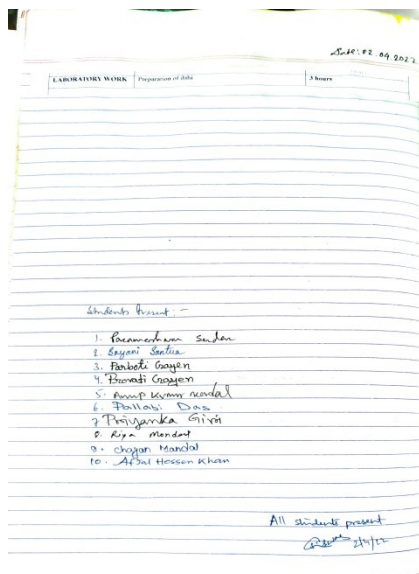 Date: 02.04.2022
LABORATORY WORK Preparation of dahi 3 hours
Students Present :-
1. Parameshwar Sardar
2. Sayani Santra
3. Parboti Gayen
4. Provati Gayen
5. Anup Kumar Mondal
6. Pallabi Das
7 Priyanka Giri
8. Riya Mondal
9. Chayan Mandal
10. Afjal Hossen Khan
All students present
2/4/22